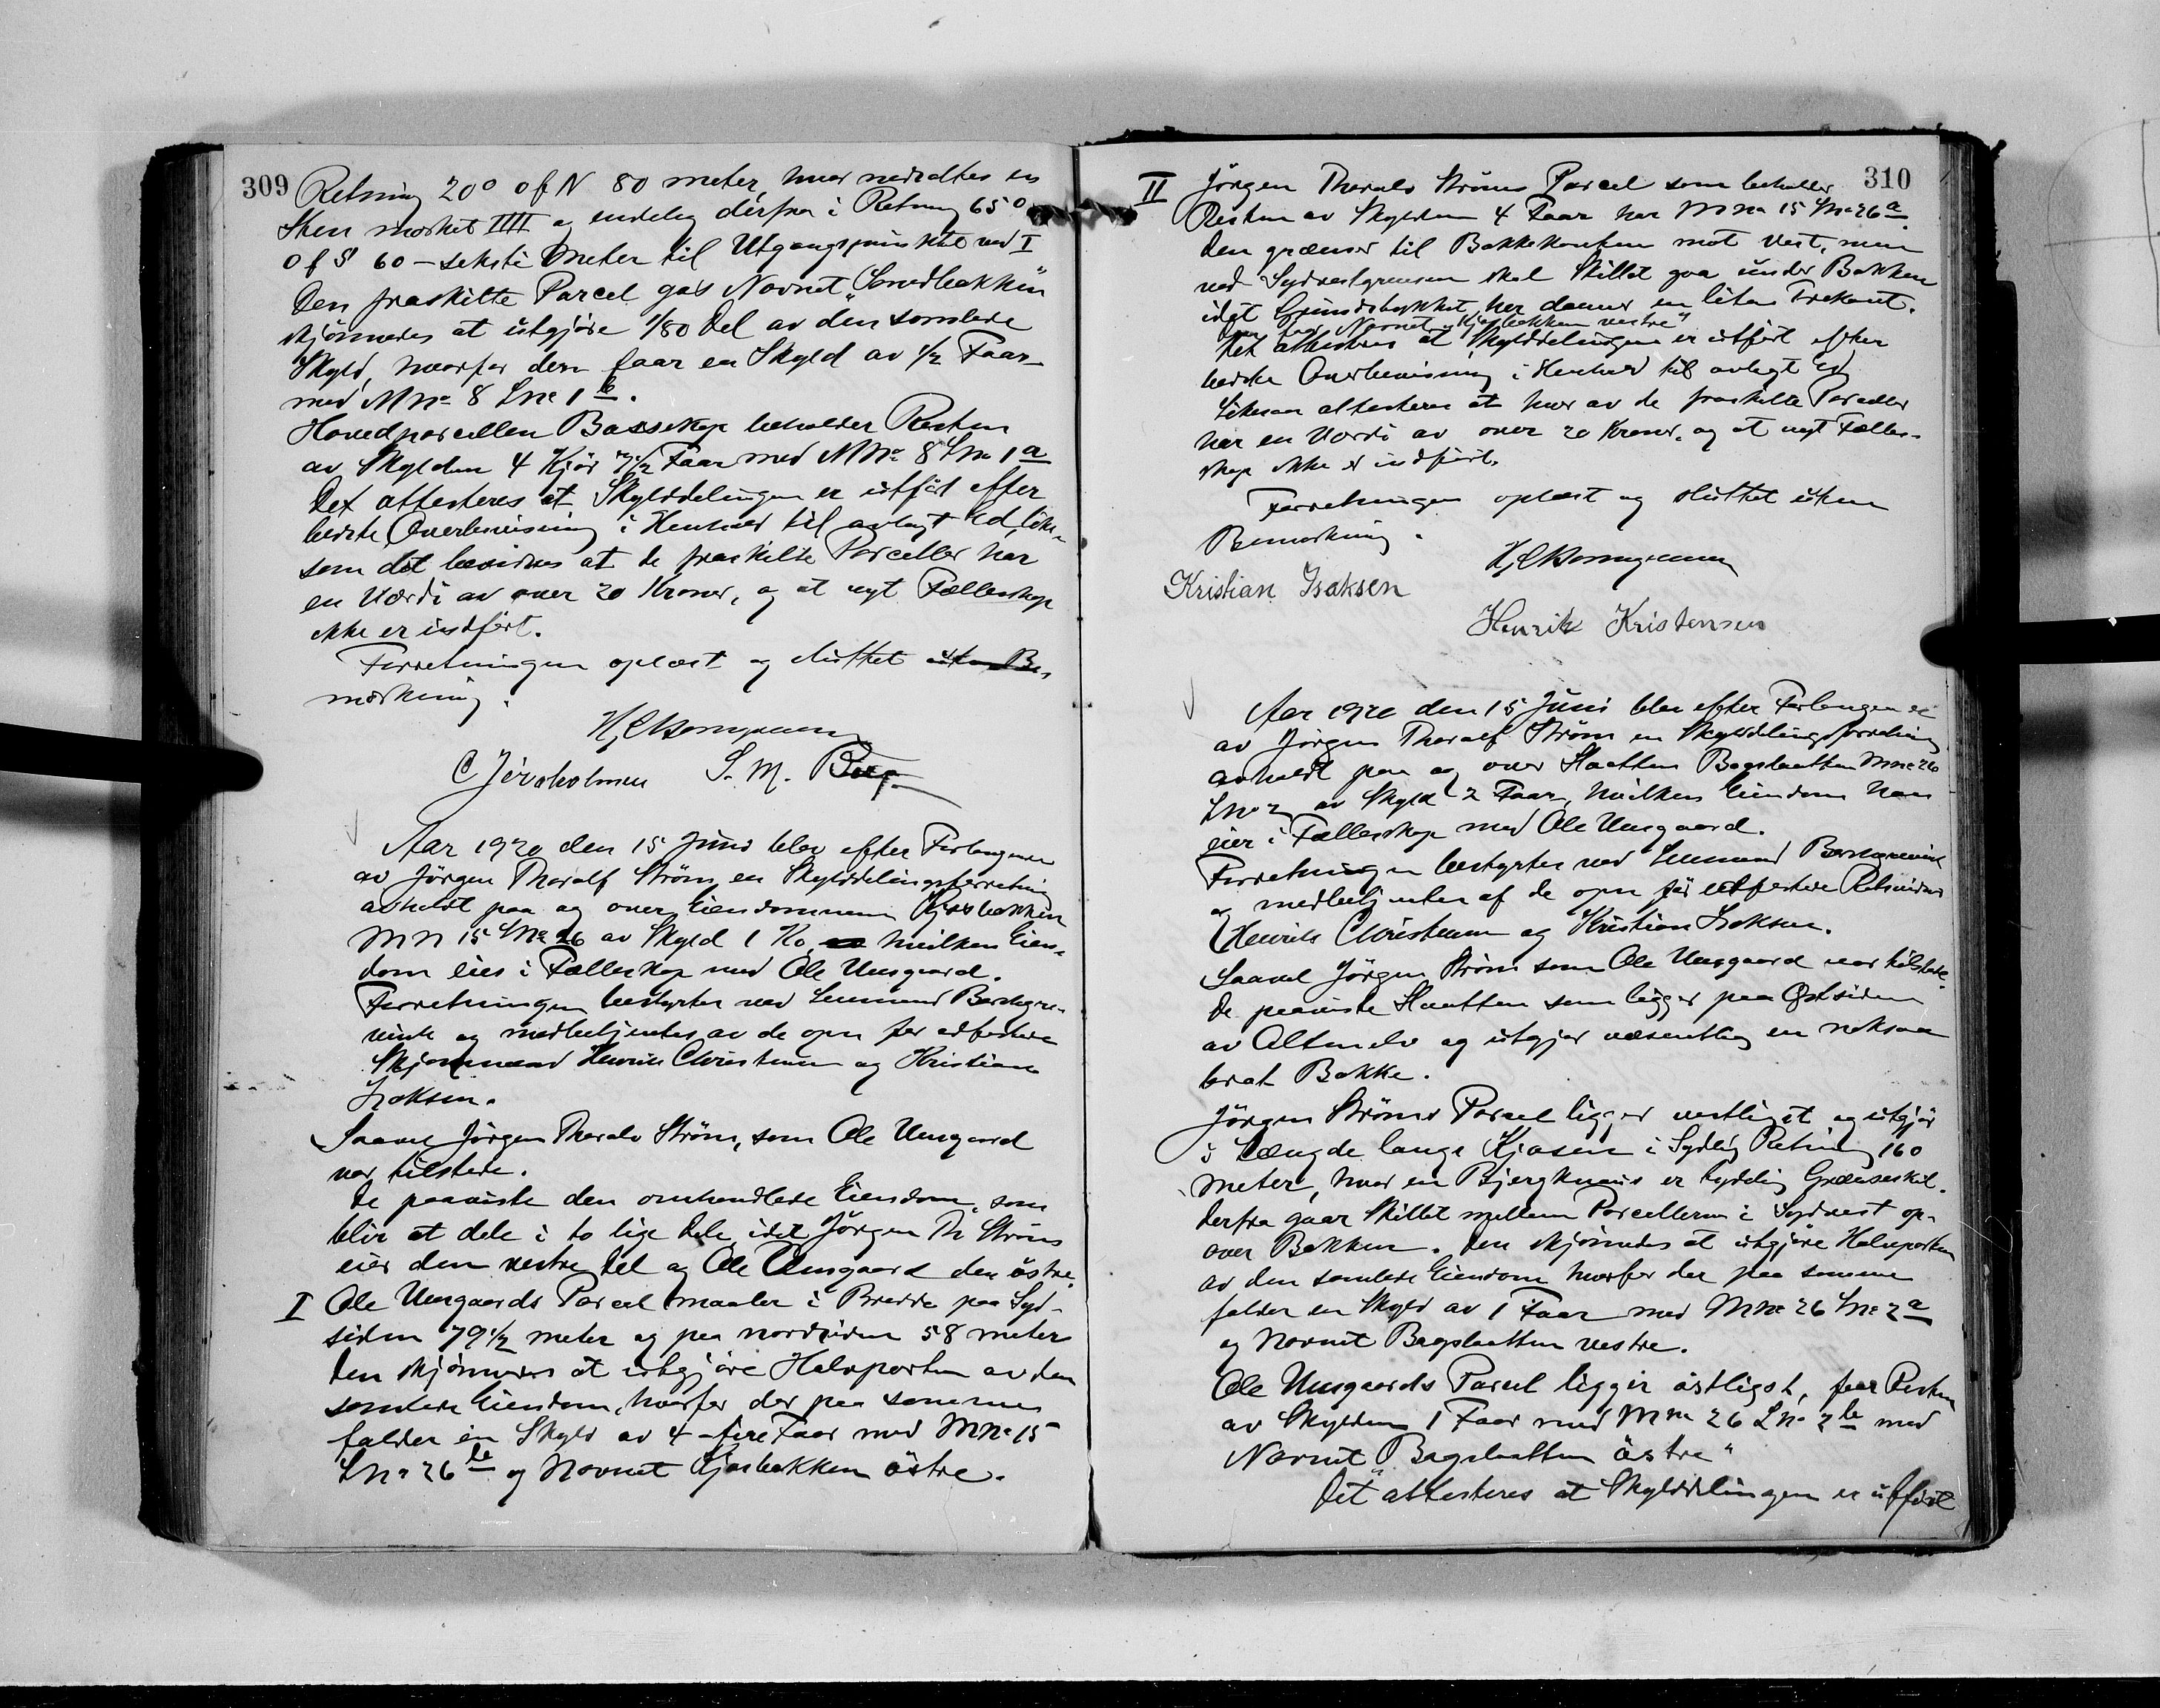 309
Retning 20° O f N 80 meter, hvor nedsattes en
Sten merket IIII og endelig derfra i Retning 65°
O f S 60 – seksti Meter til Utgangspunktet ved I
Den fraskilte Parcel gas Navnet „
skjønnedes at utgjøre 1/80 Del av den samlede
Skyld, hvorfor den faar en Skyld av 1/2 Faar
med M No 8 L no 1 b.
Hovedparcellen Bassekop beholder Resten
av Skylden 4 Kjør 7 1/2 Faar med M No 8 L No 1 a
Det attesteres at Skylddelingen er utført efter
bedste Overbevisning i Henhold til avlagt Ed, like-
som det bevidnes at de fraskilte Parceller har
en Værdi av over 20 Kroner, og at nyt Fælleskap
ikke er indført.
Forretningen oplæst og sluttet uten Be-
mærkning.
C Jernholmen S. M. Berg
Aar 1920 den 15 Juni blev efter Forlangende
av Jørgen Thoralf Strøm en Skylddelingsforretning
avholdt paa og over Eiendommen Kjosbakken
M N 15 L No 26 av Skyld 1 Ko, hvilken Eien-
dom eies i Fælleskap med Ole Unsgaard.
Forretningen bestyrtes ved Lensmand Borchgre-
vink og medbetjentes av de opn før edfestede
Skjønmænd Henrik Christensen og Kristian
Isaksen.
Saavel Jørgen Thoralv Strøm, som Ole Unsgaard
var tilstede.
De paaviste den omhandlede Eiendom, som
blir at dele i to lige Dele, idet Jørgen Th Strøm
eier den vestre Del og Ole Unsgaard den østre.
I Ole Unsgaards Parcel maaler i Bredde paa Syd-
siden 79 1/2 meter og paa nordsiden 58 meter
Den skjønnedes at utgjøre Halvparten av den
samlede Eiendom, hvorfor der paa samme
falder en Skyld av 4 – fire Faar med M No 15
L No 26 b og Navnet Kjosbakken østre.
310
II Jörgen Thoralv Strøms Parcel som beholder
Resten av Skylden 4 Faar har M no 15 L no 26 a.
Den grænser til Bakkekanten mot Vest, men
ved Sydvestgrensen skal Skillet gaa under Bakken
idet Grundstykket her danner en liten Trekant.
Navnet „Kjosbakken vestre“
Det attesteres at Skylddelingen er utført efter
bedste Overbevisning i Henhold til avlagt Ed
Likesaa attesteres at hver av de fraskilte Parceller
har en Værdi av over 20 Kroner, og at nyt Fælles-
skap ikke er indført.
Forretningen oplæst og sluttet uten
Bemærkning.
Kristian Isaksen
Henrik Kristensen
Aar 1920 den 15 Juni blev efter Forlangende
av Jørgen Thoralf Strøm en Skylddelingsforretning
avholdt paa og over Slaatten Bagslaatten M no 26
L No 2 av Skyld 2 Faar, hvilken Eiendom han
eier i Fælleskap med Ole Unsgaard.
Forretningen bestyrtes ved Lensmand Borchgrevink
og medbetjentes af de opn før edfestede
Henrik Christensen og Kristian Isaksen.
Saavel Jörgen Strøm som Ole Unsgaard var tilstede.
De paaviste Slaatten som ligger paa Østsiden
av Altenelv og utgjør væsentlig en noksaa
brat Bakke.
Jörgen Strøms Parcel ligger vestligst og utgjør
i Længde langs Kjosen i Sydlig Retning 160
Meter, hvor en Bjergknaus er tydelig Grænseskel.
Derfra gaar Skillet mellem Parcellerne i Sydvest op-
over Bakken. Den skjønnedes at utgjøre Halvparten
av den samlede Eiendom hvorfor der paa samme
falder en Skyld av 1 Faar med M no 26 L no 2 a
og Navnet Bagslaatten vestre.
Ole Unsgaards Parcel ligger østligst, faar Resten
av Skylden 1 Faar med M no 26 L no 2 b med
Navnet „Bagslaatten østre“
Det attesteres at Skylddelingen er utført